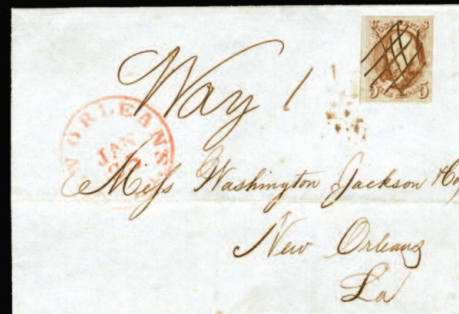 5 5
Way 1
ORLEANS
JAN
Miss Washington Jackson
New Orleans
La